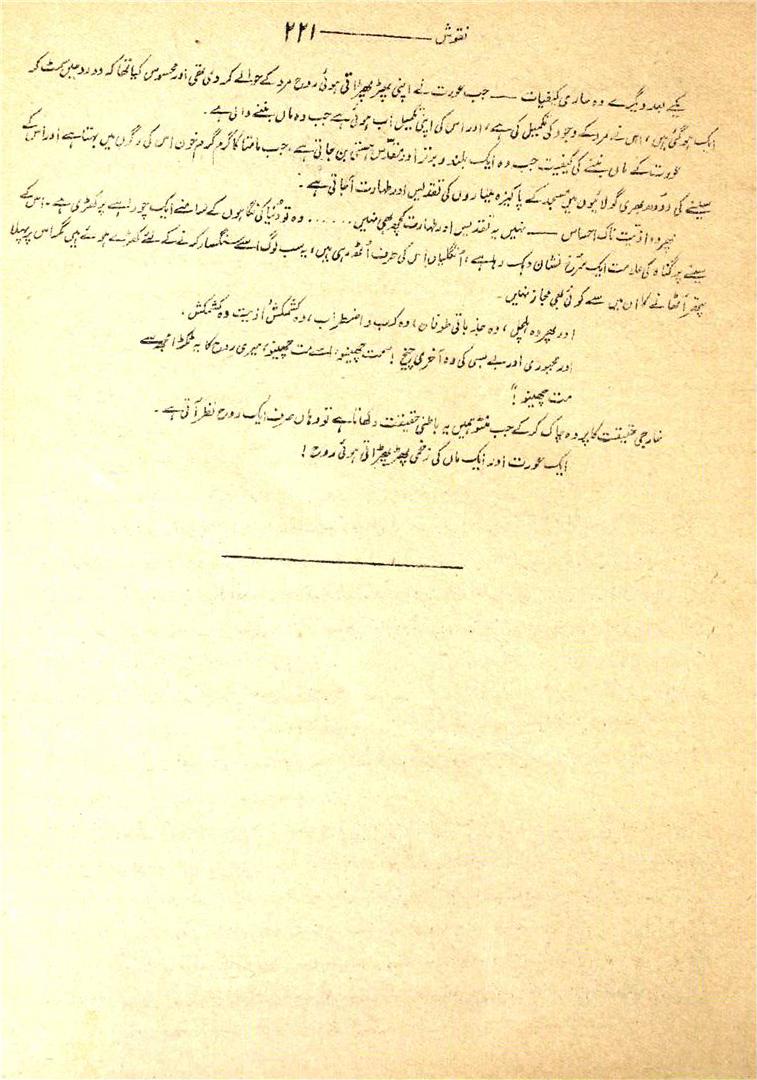 نقوش ——— ۲۲۱
یکے بعد دیگرے وہ ساری کیفیات —— جب عورت نے اپنی پھڑپھڑاتی ہوئی روح مرد کے حوالے کر دی تھی اور محسوس کیا تھا کہ دو روحیں سمٹ کر
ایک ہو گئی ہیں، اس نے مرد کے وجود کی تکمیل کی ہے، اور اس کی اپنی تکمیل اب ہوئی ہے جب وہ ماں بننے والی ہے۔
عورت کے ماں بننے کی کیفیت جب وہ ایک بلند و برتر اور مقدس ہستی بن جاتی ہے، جب مامتا کا گرم گرم خون اس کی رگوں میں بہتا ہے اور اس کے
سینے کی دودھ بھری گولائیوں میں مسجد کے پاکیزہ میناروں کی تقدیس اور طہارت آجاتی ہے۔
پھر وہ اذیت ناک احساس —— نہیں یہ تقدیس اور طہارت کچھ بھی نہیں ...... وہ تو دنیا کی نگاہوں کے سامنے ایک چوراہے پر کھڑی ہے۔ اس کے
سینے پر گناہ کی علامت ایک سرخ نشان دہک رہا ہے، انگلیاں اس کی طرف اُٹھ رہی ہیں، یہ سب لوگ اسے سنگسار کرنے کے لئے کھڑے ہوئے ہیں مگر اس پر پہلا
پتھر اُٹھانے کا ان میں سے کوئی بھی مجاز نہیں۔
اور پھر وہ ہلچل، وہ جذباتی طوفان، وہ کرب و اضطراب، وہ کشمکش اذیت وہ کشمکش۔
اور مجبوری اور بے بسی کی وہ آخری چیخ! "مت چھینو، اسے مت چھینو، میری روح کا یہ ٹکڑا مجھ سے
مت چھینو!"
خارجی حقیقت کا پردہ چاک کر کے جب منٹو ہمیں یہ باطنی حقیقت دکھاتا ہے تو وہاں صرف ایک روح نظر آتی ہے۔
ایک عورت اور ایک ماں کی زخمی پھڑپھڑاتی ہوئی روح!